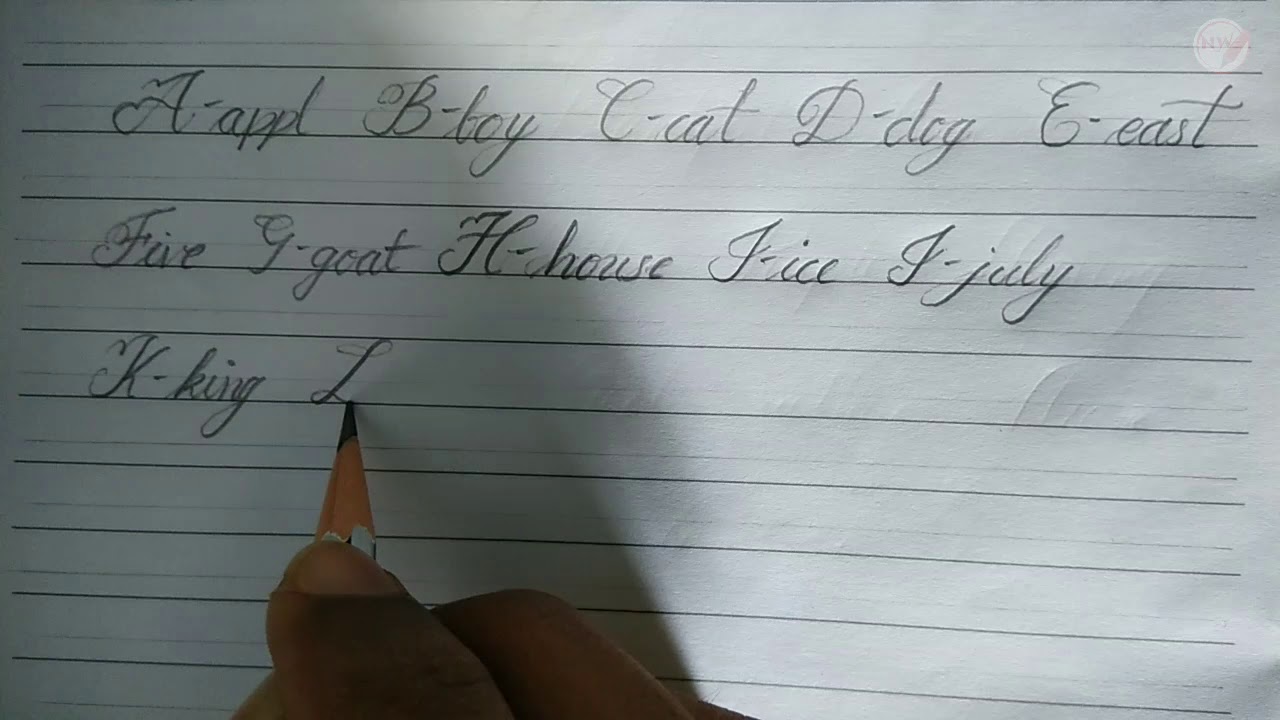 A-appl B-boy C-cat D-dog E-east
Five G-goat H-house I-ice J-july
K-king L
NW